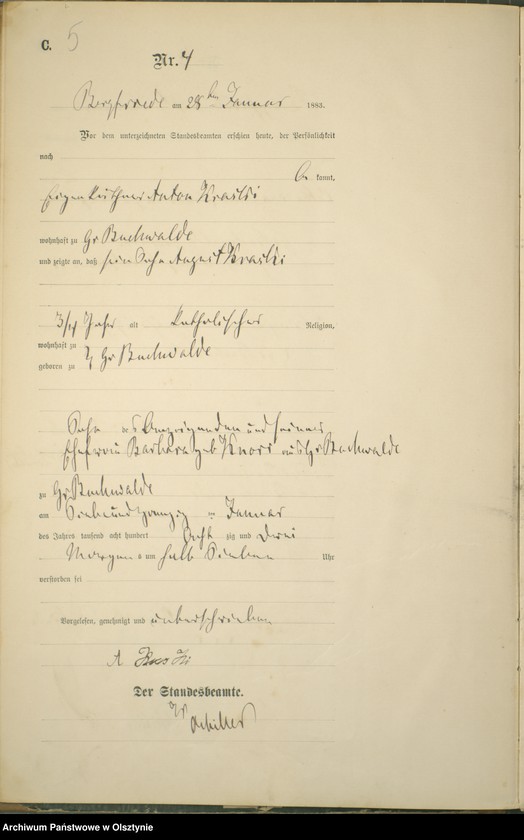 C. 5
Nr. 4
Bergfriede am 28ten Januar 1883.
Vor dem unterzeichneten Standesbeamten erschien heute, der Persönlichkeit
nach
be kannt,
Eigenkäthner Anton Kraski
wohnhaft zu Gr Buchwalde
und zeigte an, daß sein Sohn August Kraski
3/4 Jahr alt katholischer Religion,
wohnhaft zu
geboren zu Gr Buchwalde
Sohn des Anzeigenden und seiner
Ehefrau Barbara geb aus Gr Buchwalde
zu Gr Buchwalde
am Siebenundzwanzig en Januar
des Jahres tausend acht hundert acht zig und drei
Morgens um halb Sieben Uhr
verstorben sei
Vorgelesen, genehmigt und unterschrieben
A
Der Standesbeamte.
Archiwum Państwowe w Olsztynie